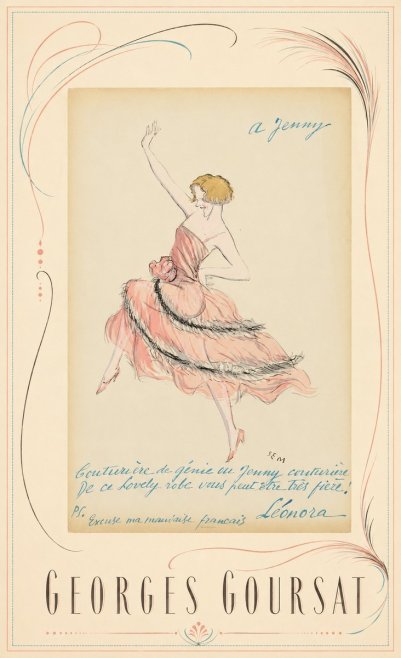 a Jenny
SEM
Couturière de génie ou Jenny couturière
De ce Lovely robe vous peut être très fière!
PS. Excuse ma mauvaise français
Léonora
GEORGES GOURSAT